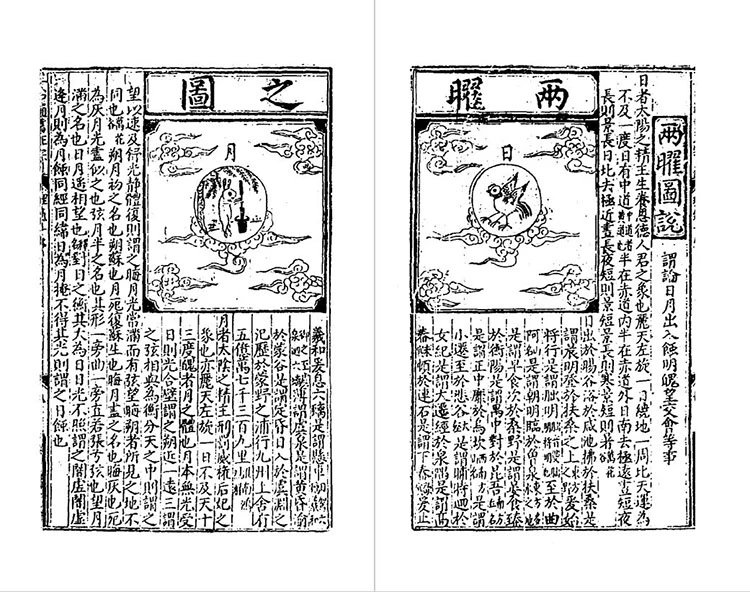 兩曜圖說
謂論日月出入蝕明魄望交會等事
日者太陽之精主生養恩德人君之象也麗天左旋一日繞地一周比天運為
不及一度日有中道半在赤道內半在赤道外日南去極遠立短夜
長則景長日北去極近晝長夜短則景短景長則寒景短則暑
兩曜
日
日出於暘谷浴於咸池拂於扶桑是
謂晨明登於扶桑之上爰始
將行是謂朏明至於曲
阿是謂朝明臨於曾泉
是謂早食次於桑野是謂晏食臻
於衡陽是謂禺中對於昆吾
是謂正中靡於鳥次是謂
小遷至於悲谷是謂晡時迴於
女紀是謂大遷經於泉隅是謂高
舂頓於連石是謂下舂爰止
之圖
月
羲和爰息六螭是謂懸車
薄虞泉是謂黃昏淪
於蒙谷是謂定昏日入於虞淵之
汜歷於蒙野之浦行九州七舍有
五億萬七千三百九里
月者太陰之精主刑罰威權后妃之
象也亦麗天左旋一日不及天十
三度魄者月之體也月本無光受
日則光合璧謂之朔近一遠三謂
之弦相與為衡分天之中則謂之
望以速及舒光靜體復則謂之晦月光當滿而有弦望晦朔者所見之地不
同也朔月初之名也朔蘇也月死復蘇生也晦月盡之名也晦灰也死
為灰月光盡似之也弦月半之名也其形一旁曲一旁直若張弓弦也望月
滿之名也日月遙相望也對日之衝其大如日日光不照謂之闇虛闇虛
逢月則為月蝕同經同緯日為月掩不得其光則謂之日蝕也